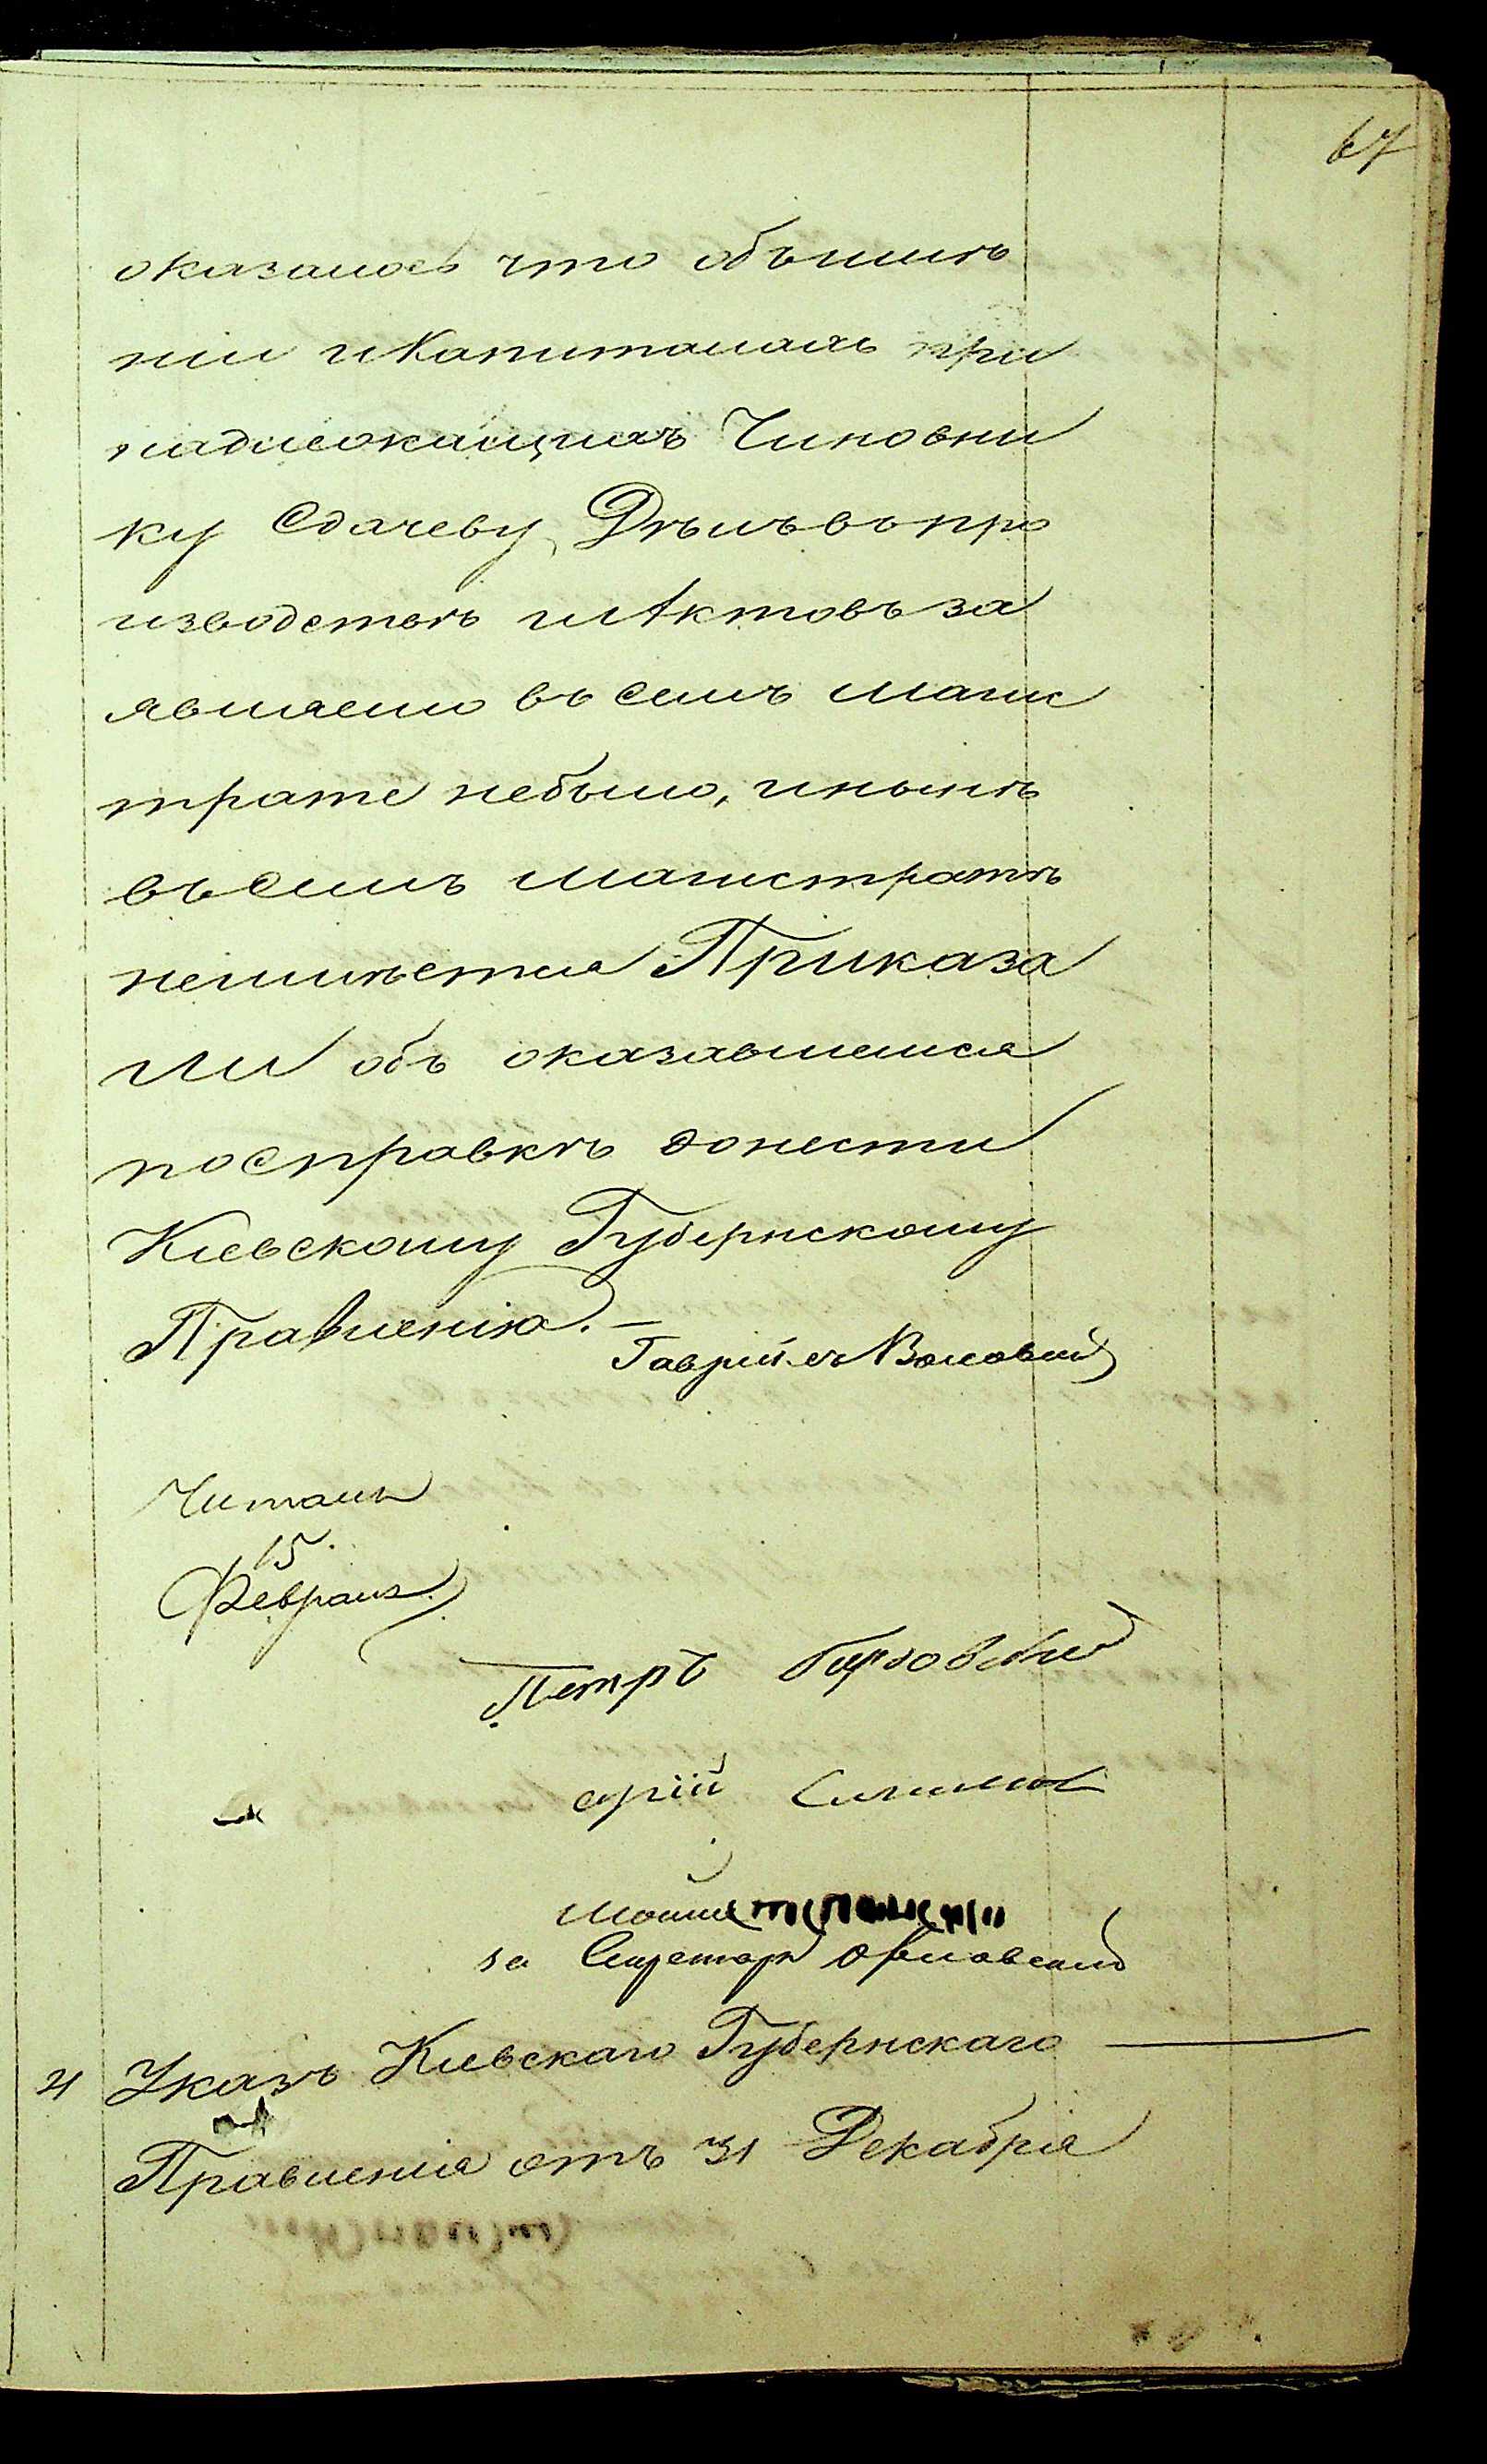 67
оказалось что объ имѣ
ніи и Капиталахъ при
надлежащихъ Чиновни
ку Сдачеву, Дѣлъ въ про
изводствѣ и Актовъ за
являемо въ семъ магис
трате небыло, и нынѣ
въ семъ магистратѣ
неимѣется Приказа
ли объ оказавшемся
по справкѣ донести
Кіевскому Губернскому
Правленію. —
Гаврійлъ
Читалъ
15.
Февраля
Петръ
за Секретаря
21 Указъ Кіевскаго Губернскаго
Правленія отъ 31 Декабрія